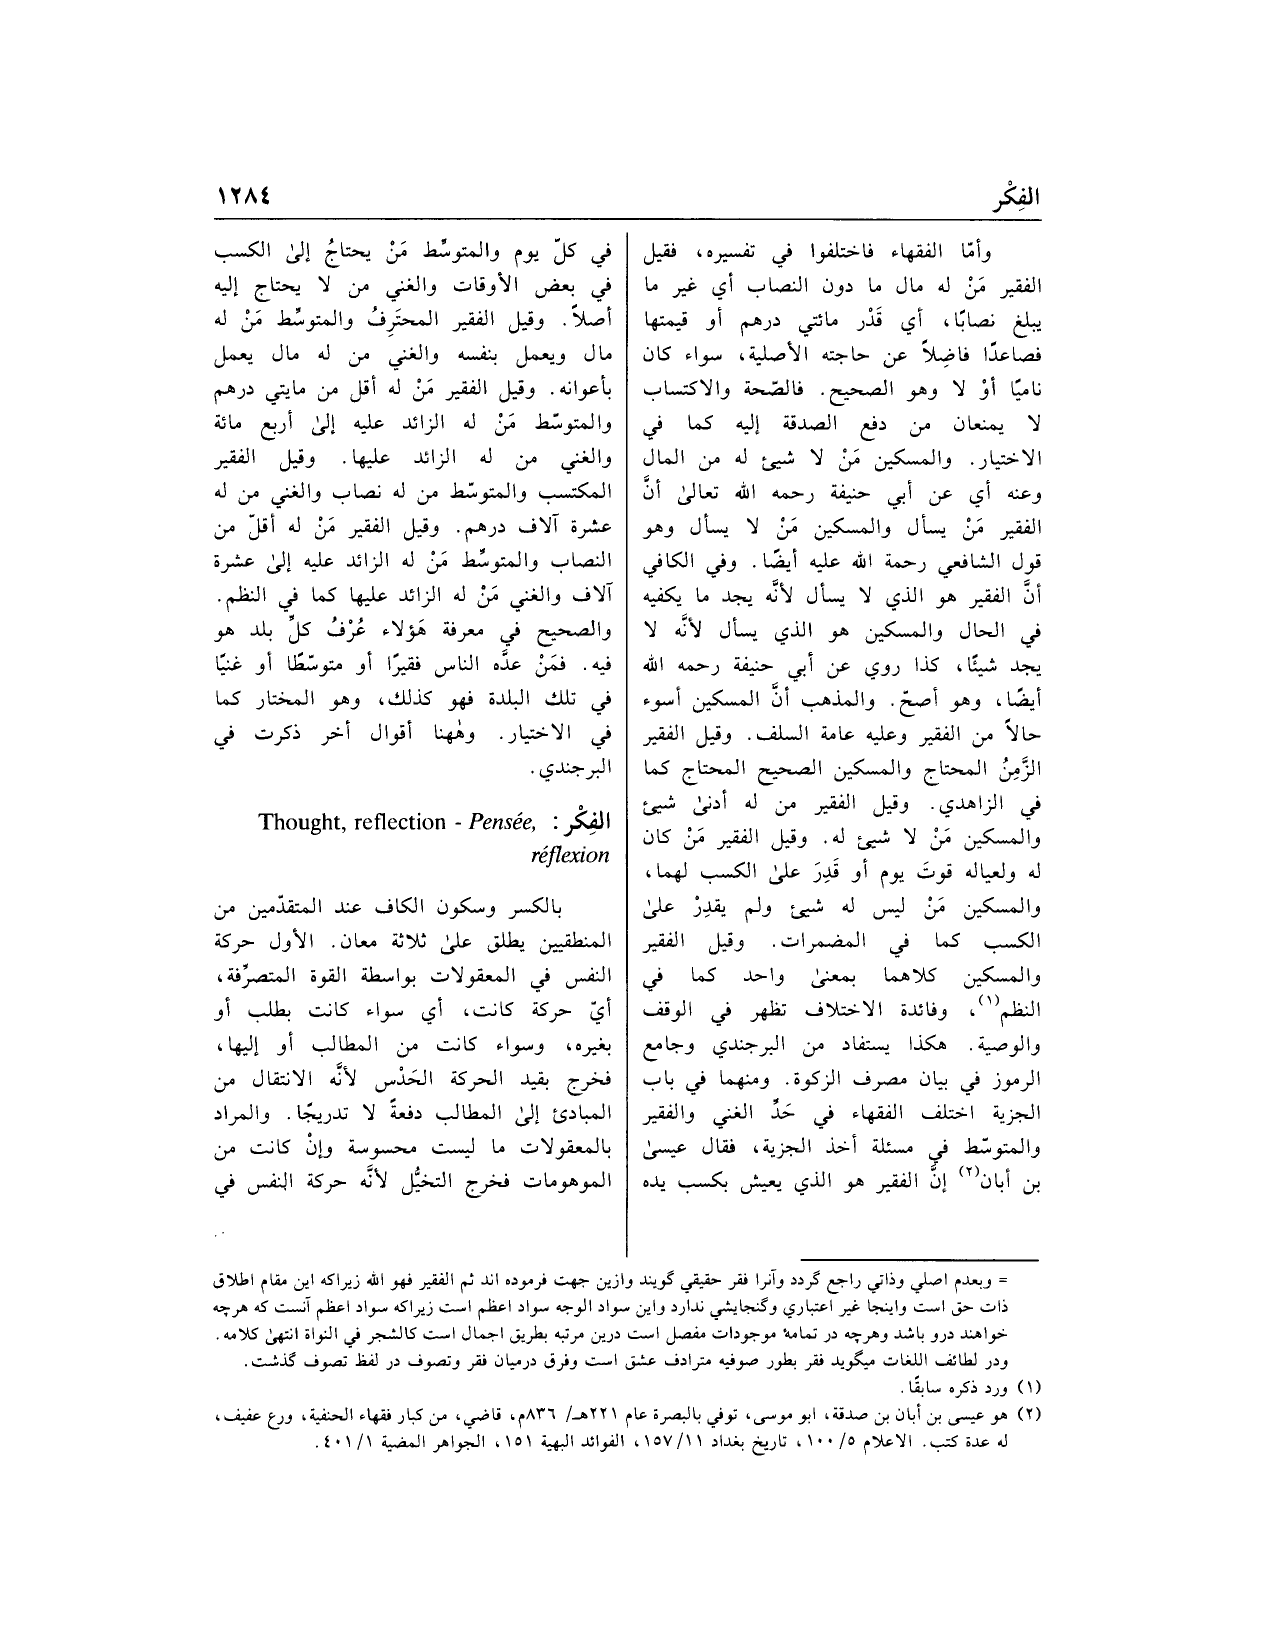 الفِكْر
١٢٨٤
وأمّا الفقهاء فاختلفوا في تفسيره، فقيل
الفقير مَنْ له مال ما دون النصاب أي غير ما
يبلغ نصابًا، أي قَدْر مائتي درهم أو قيمتها
فصاعدًا فاضِلاً عن حاجته الأصلية، سواء كان
ناميًا أوْ لا وهو الصحيح. فالصّحة والاكتساب
لا يمنعان من دفع الصدقة إليه كما في
الاختيار. والمسكين مَنْ لا شيئ له من المال
وعنه أي عن أبي حنيفة رحمه الله تعالىٰ أنَّ
الفقير مَنْ يسأل والمسكين مَنْ لا يسأل وهو
قول الشافعي رحمة الله عليه أيضًا. وفي الكافي
أنَّ الفقير هو الذي لا يسأل لأنَّه يجد ما يكفيه
في الحال والمسكين هو الذي يسأل لأنَّه لا
يجد شيئًا، كذا روي عن أبي حنيفة رحمه الله
أيضًا، وهو أصحّ. والمذهب أنَّ المسكين أسوء
حالاً من الفقير وعليه عامة السلف. وقيل الفقير
الزَّمِنُ المحتاج والمسكين الصحيح المحتاج كما
في الزاهدي. وقيل الفقير من له أدنىٰ شيئ
والمسكين مَنْ لا شيئ له. وقيل الفقير مَنْ كان
له ولعياله قوتَ يوم أو قَدِرَ علىٰ الكسب لهما،
والمسكين مَنْ ليس له شيئ ولم يقدِرْ علىٰ
الكسب كما في المضمرات. وقيل الفقير
والمسكين كلاهما بمعنىٰ واحد كما في
النظم(١)، وفائدة الاختلاف تظهر في الوقف
والوصية. هكذا يستفاد من البرجندي وجامع
الرموز في بيان مصرف الزكوة. ومنهما في باب
الجزية اختلف الفقهاء في حَدِّ الغني والفقير
والمتوسّط في مسئلة أخذ الجزية، فقال عيسىٰ
بن أبان(٢) إنَّ الفقير هو الذي يعيش بكسب يده
في كلّ يوم والمتوسِّط مَنْ يحتاجُ إلىٰ الكسب
في بعض الأوقات والغني من لا يحتاج إليه
أصلاً. وقيل الفقير المحترِفُ والمتوسِّط مَنْ له
مال ويعمل بنفسه والغني من له مال يعمل
بأعوانه. وقيل الفقير مَنْ له أقل من مايتي درهم
والمتوسّط مَنْ له الزائد عليه إلىٰ أربع مائة
والغني من له الزائد عليها. وقيل الفقير
المكتسب والمتوسّط من له نصاب والغني من له
عشرة آلاف درهم. وقيل الفقير مَنْ له أقلّ من
النصاب والمتوسِّط مَنْ له الزائد عليه إلىٰ عشرة
آلاف والغني مَنْ له الزائد عليها كما في النظم.
والصحيح في معرفة هَؤلاء عُرْفُ كلِّ بلد هو
فيه. فمَنْ عدَّه الناس فقيرًا أو متوسّطًا أو غنيًا
في تلك البلدة فهو كذلك، وهو المختار كما
في الاختيار. وهٰهنا أقوال أخر ذكرت في
البرجندي.
الفِكْر : Thought, reflection - Pensée,
réflexion
بالكسر وسكون الكاف عند المتقدّمين من
المنطقيين يطلق علىٰ ثلاثة معان. الأول حركة
النفس في المعقولات بواسطة القوة المتصرِّفة،
أيّ حركة كانت، أي سواء كانت بطلب أو
بغيره، وسواء كانت من المطالب أو إليها،
فخرج بقيد الحركة الحَدْس لأنَّه الانتقال من
المبادئ إلىٰ المطالب دفعةً لا تدريجًا. والمراد
بالمعقولات ما ليست محسوسة وإنْ كانت من
الموهومات فخرج التخيُّل لأنَّه حركة النفس في
= وبعدم اصلي وذاتي راجع گردد وآنرا فقر حقيقي گويند وازين جهت فرموده اند ثم الفقير فهو الله زيراكه اين مقام اطلاق
ذات حق است واينجا غير اعتباري وگنجايشي ندارد واين سواد الوجه سواد اعظم است زيراكه سواد اعظم آنست كه هرچه
خواهند درو باشد وهرچه در تمامهٔ موجودات مفصل است درين مرتبه بطريق اجمال است كالشجر في النواة انتهىٰ كلامه.
ودر لطائف اللغات ميگويد فقر بطور صوفيه مترادف عشق است وفرق درميان فقر وتصوف در لفظ تصوف گذشت.
(١) ورد ذكره سابقًا.
(٢) هو عيسى بن أبان بن صدقة، ابو موسى، توفي بالبصرة عام ٢٢١هـ/ ٨٣٦م، قاضي، من كبار فقهاء الحنفية، ورع عفيف،
له عدة كتب. الاعلام ٥/ ١٠٠، تاريخ بغداد ١١/ ١٥٧، الفوائد البهية ١٥١، الجواهر المضية ١/ ٤٠١.